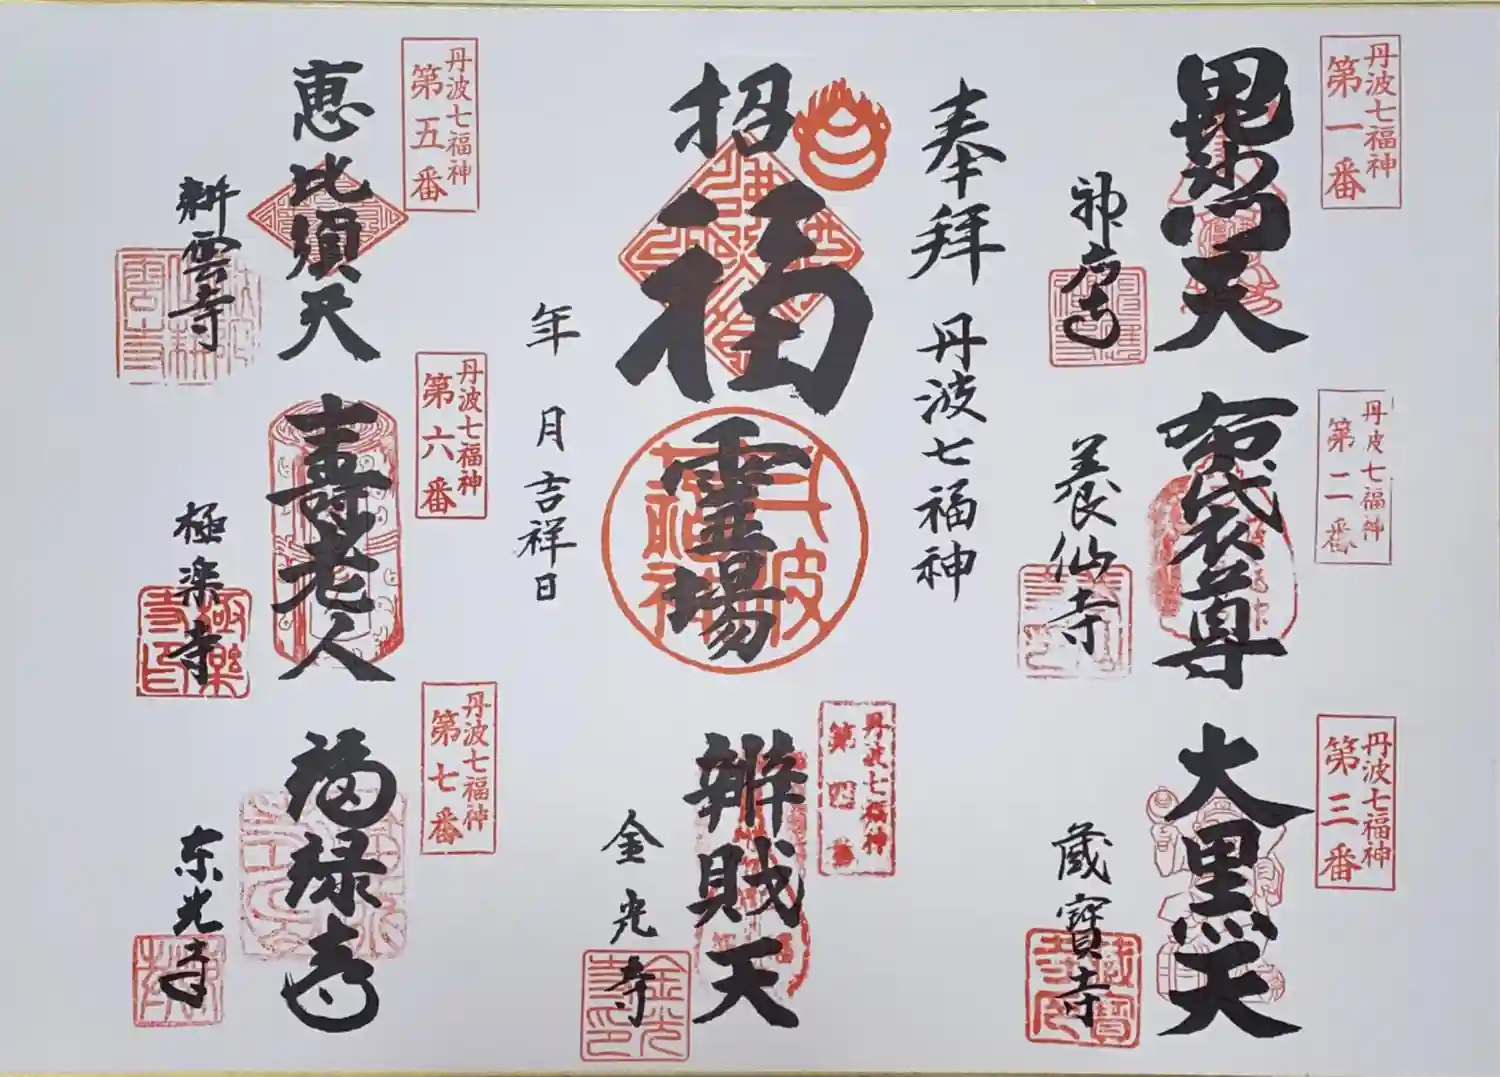 丹波七福神
第一番
毘沙門天
神応寺
丹波七福神
第二番
布袋尊
養仙寺
丹波七福神
第三番
大黒天
蔵寳寺
蔵寳寺印
奉拝 丹波七福神
招福霊場
丹波七福神
年 月吉祥日
丹波七福神
第四番
辨財天
金光寺
金光寺印
丹波七福神
第五番
恵比須天
耕雲寺
丹波七福神
第六番
寿老人
極楽寺
極楽寺印
丹波七福神
第七番
福禄寿
东光寺